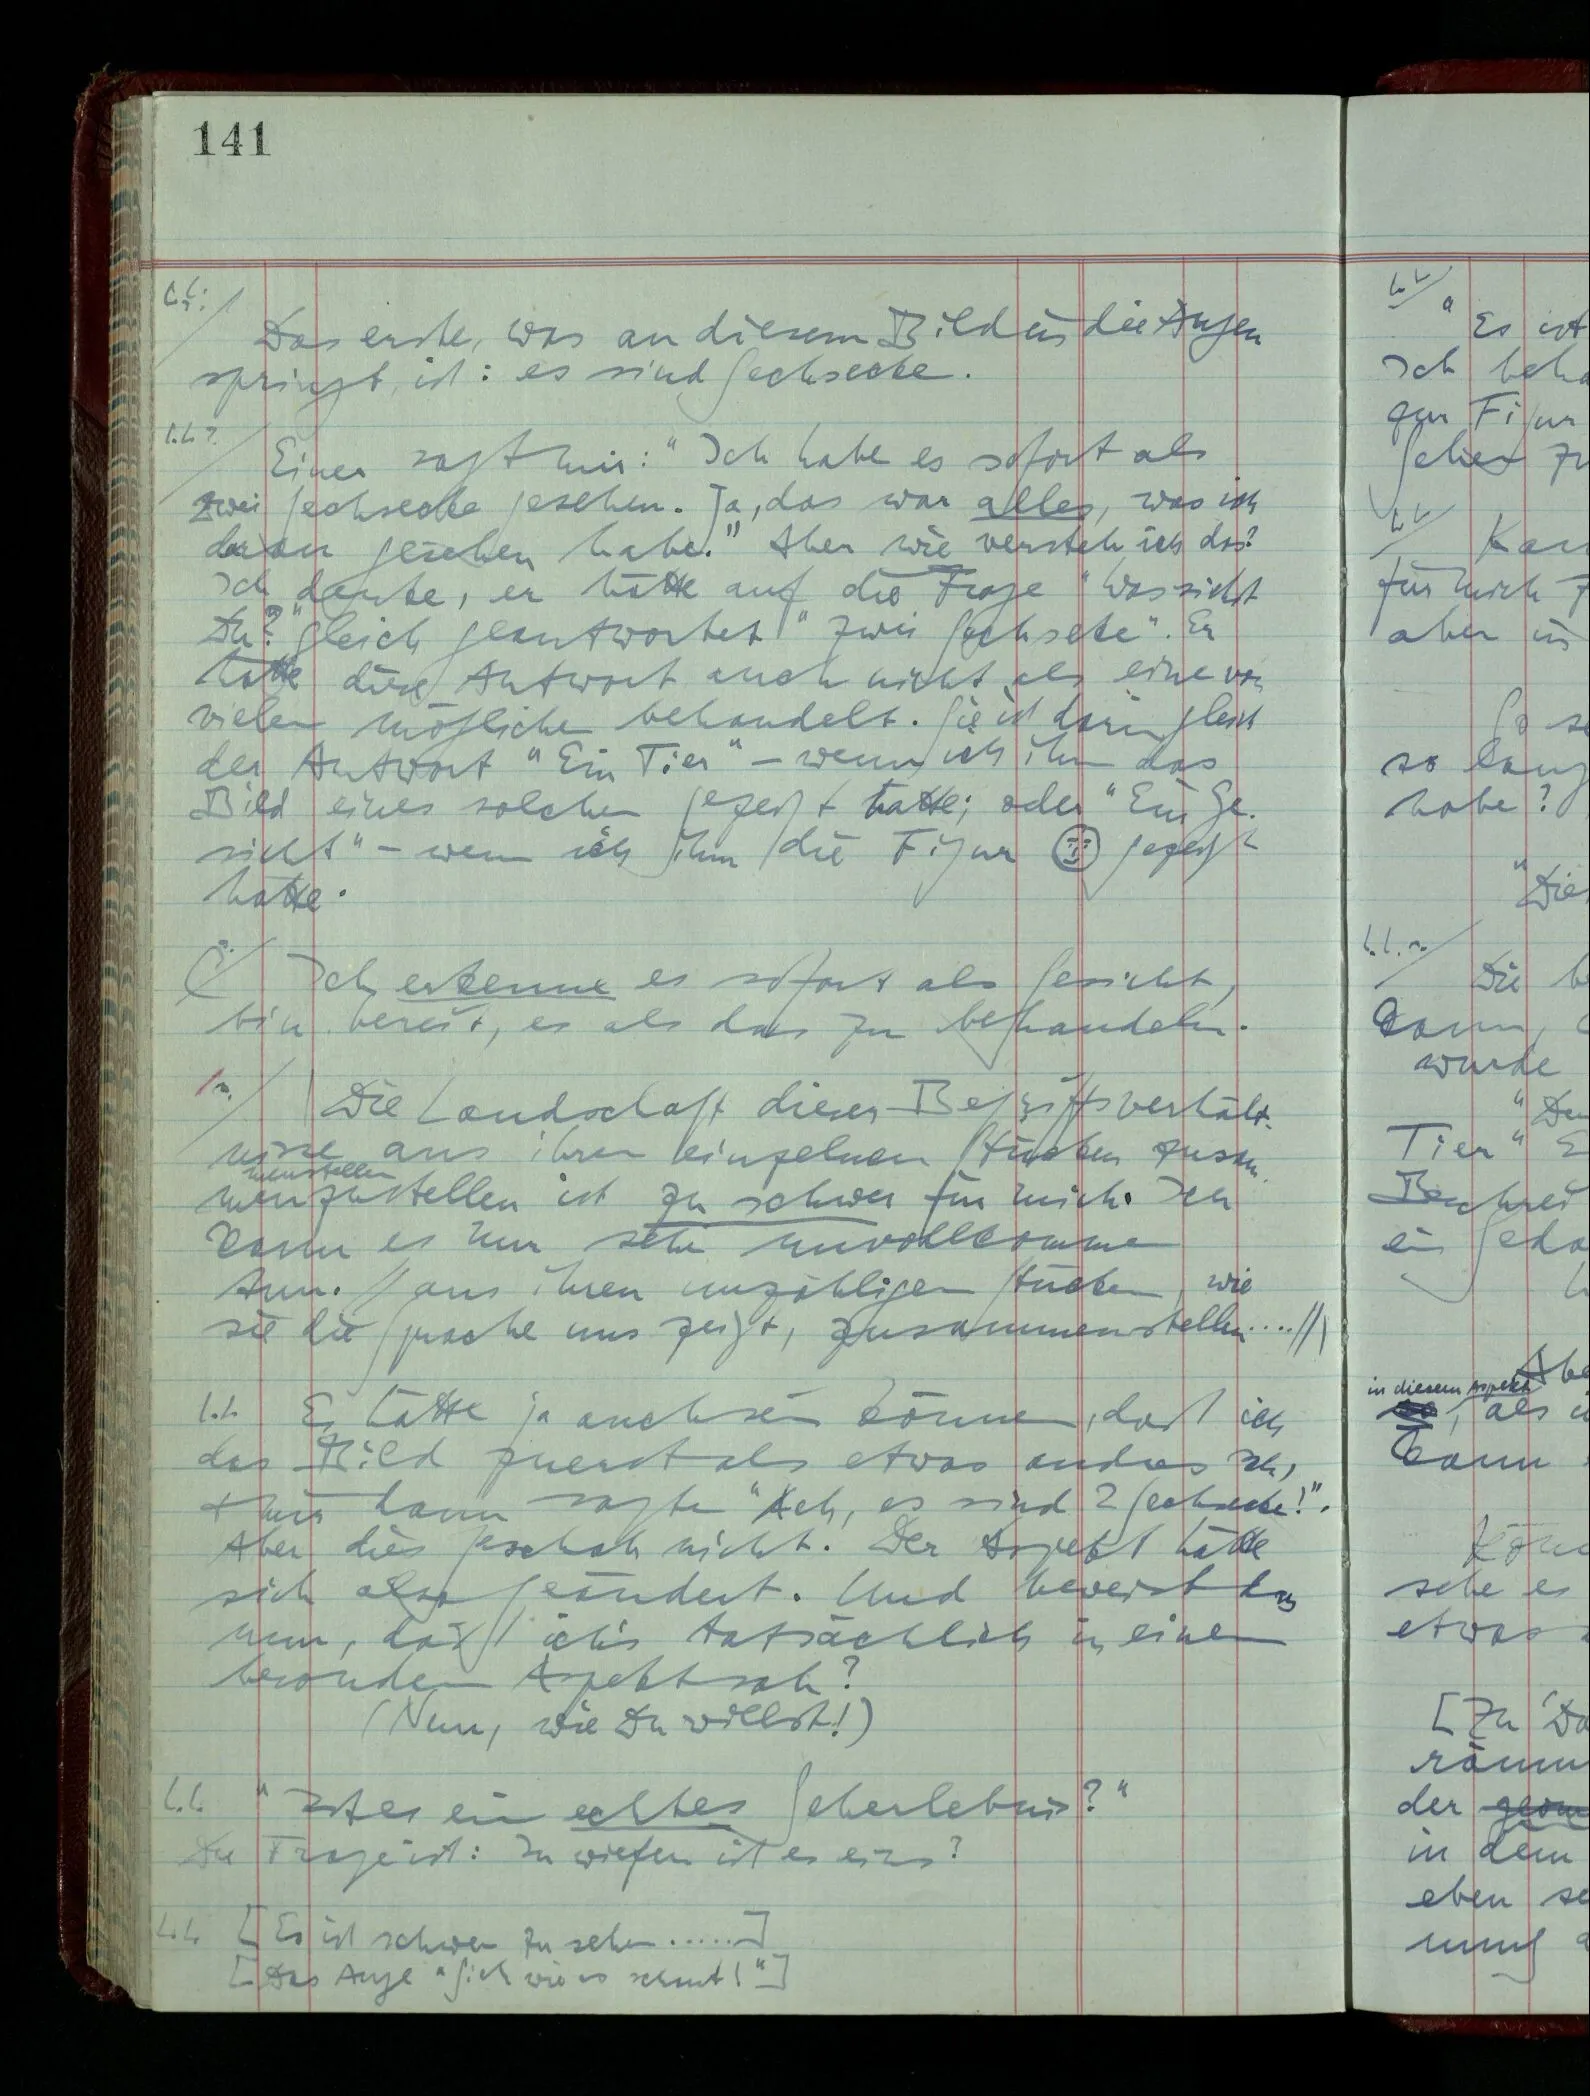 141
Das erste, was an diesem Bild in die Augen
springt, ist: es sind Sechsecke.
Einer sagt mir: "Ich habe es sofort als
zwei Sechsecke gesehen. Ja, das war alles, was ich
daran gesehen habe." Aber wie versteh ich das?
Ich denke, er hätte auf die Frage "Was siehst
Du?" gleich geantwortet "zwei Sechsecke". Er
hätte diese Antwort auch nicht als eine von
vielen möglichen behandelt. Sie ist darin gleich
der Antwort "Ein Tier" – wenn ich ihm das
Bild eines solchen gezeigt hätte; oder "Ein Ge-
sicht" – wenn ich ihm die Figur gezeigt
hätte.
Ich erkenne es sofort als Gesicht,
bin bereit, es als das zu behandeln.
Die Landschaft dieser Begriffsverhält-
nisse aus ihren einzelnen Stücken zusam-
menstellen
menzustellen ist zu schwer für mich. Ich
kann es nur sehr unvollkommen
tun. // aus ihren unzähligen Stücken, wie
sie die Sprache uns zeigt, zusammenstellen .... //
Es hätte ja auch sein können, daß ich
das Bild zuerst als etwas andres seh,
& mir dann sagte "Ach, es sind 2 Sechsecke!".
Aber dies geschah nicht. Der Aspekt hätte
sich also geändert. Und beweist das
nun, daß ich's tatsächlich in einem
besondern Aspekt sah?
(Nun, wie Du willst!)
"Ist es ein echtes Seherlebnis?"
Die Frage ist: Inwiefern ist es eins?
[Es ist schwer zu sehen .....]
[Das Auge "Sieh wie es schaut!"]
"Es ist
Ich beha
gur Figur
Sehen zu
Kan
für mich
aber in
So se
so lang
habe?
"Die
Die b
kann,
wurde
Tier" E
Beschrei
ein Geda
Abe
in diesem Aspekt
, als
kann
Könn
sehe es
etwas
[Zu 'Da
räum
der
in dem
eben se
nung